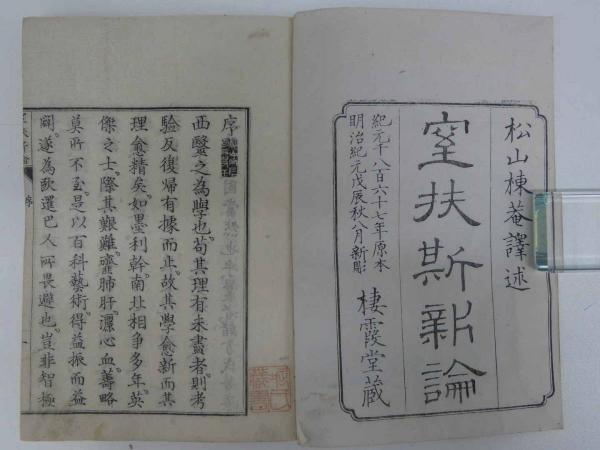 松山棟菴譯述
窒扶斯新論
紀元千八百六十七年原本
明治紀元戊辰秋八月新彫
棲霞堂蔵
序
西醫之為學也苟其理有未盡者則考
驗反復帰有據而止故其學愈新而其
理愈精矣如墨利幹南北相争多年英
傑之士際其艱難齎肺肝灑心血籌略
莫所不至是以百科藝術得益振而益
闢遂為歐邏巴人所畏避也豈非智極